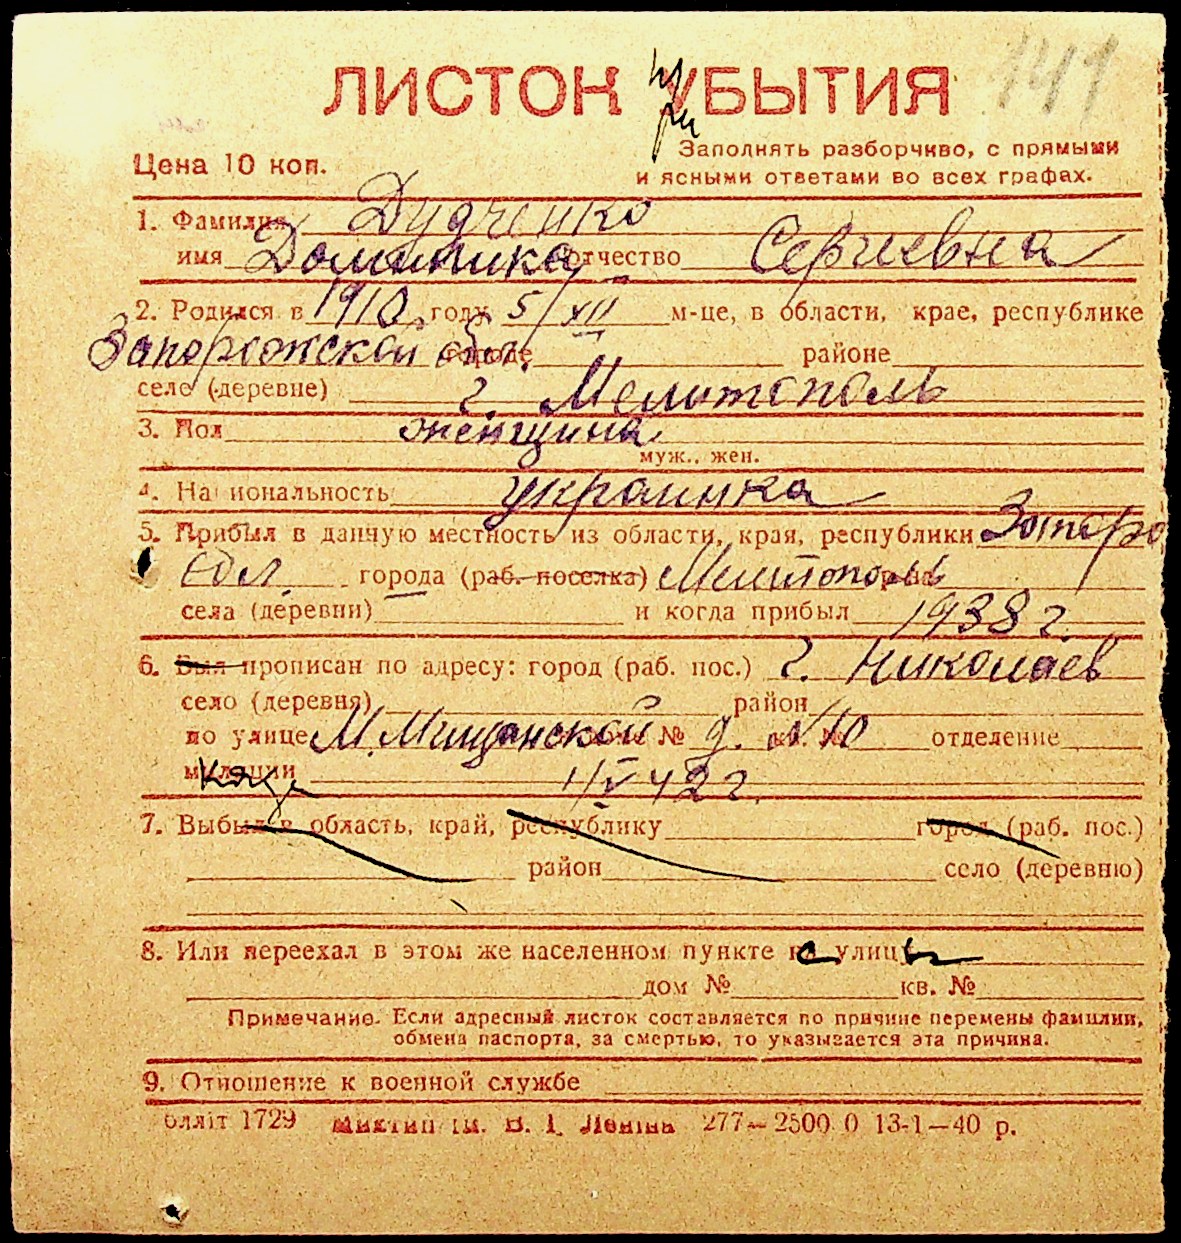 141
ЛИСТОК УБЫТИЯ
при
Цена 10 коп.
Заполнять разборчиво, с прямыми
и ясными ответами во всех графах.
1. Фамилия Дудченко
имя Доминика отчество Сергиевна
2. Родился в 1910 году 5/XII м-це, в области, крае, республике
Запорожской обл. городе районе
село (деревне) г. Мелитополь
3. Пол женщина
муж., жен.
4. Национальность украинка
5. Прибыл в данную местность из области, края, республики Запоро
обл. города (раб. поселка) Мелитополь р-на
села (деревни) и когда прибыл 1938 г.
6. Был прописан по адресу: город (раб. пос.) г. Николаев
село (деревня) район
по улице М. Мищанской № д. №10 отделение
милиции 1/V 42 г.
7. Выбыл в область, край, республику город (раб. пос.)
район село (деревню)
8. Или переехал в этом же населенном пункте с улицы
дом № кв. №
Примечание. Если адресный листок составляется по причине перемены фамилии,
обмена паспорта, за смертью, то указывается эта причина.
9. Отношение к военной службе
1729 ім. В. І. Леніна 277—2500 0 13-1—40 р.